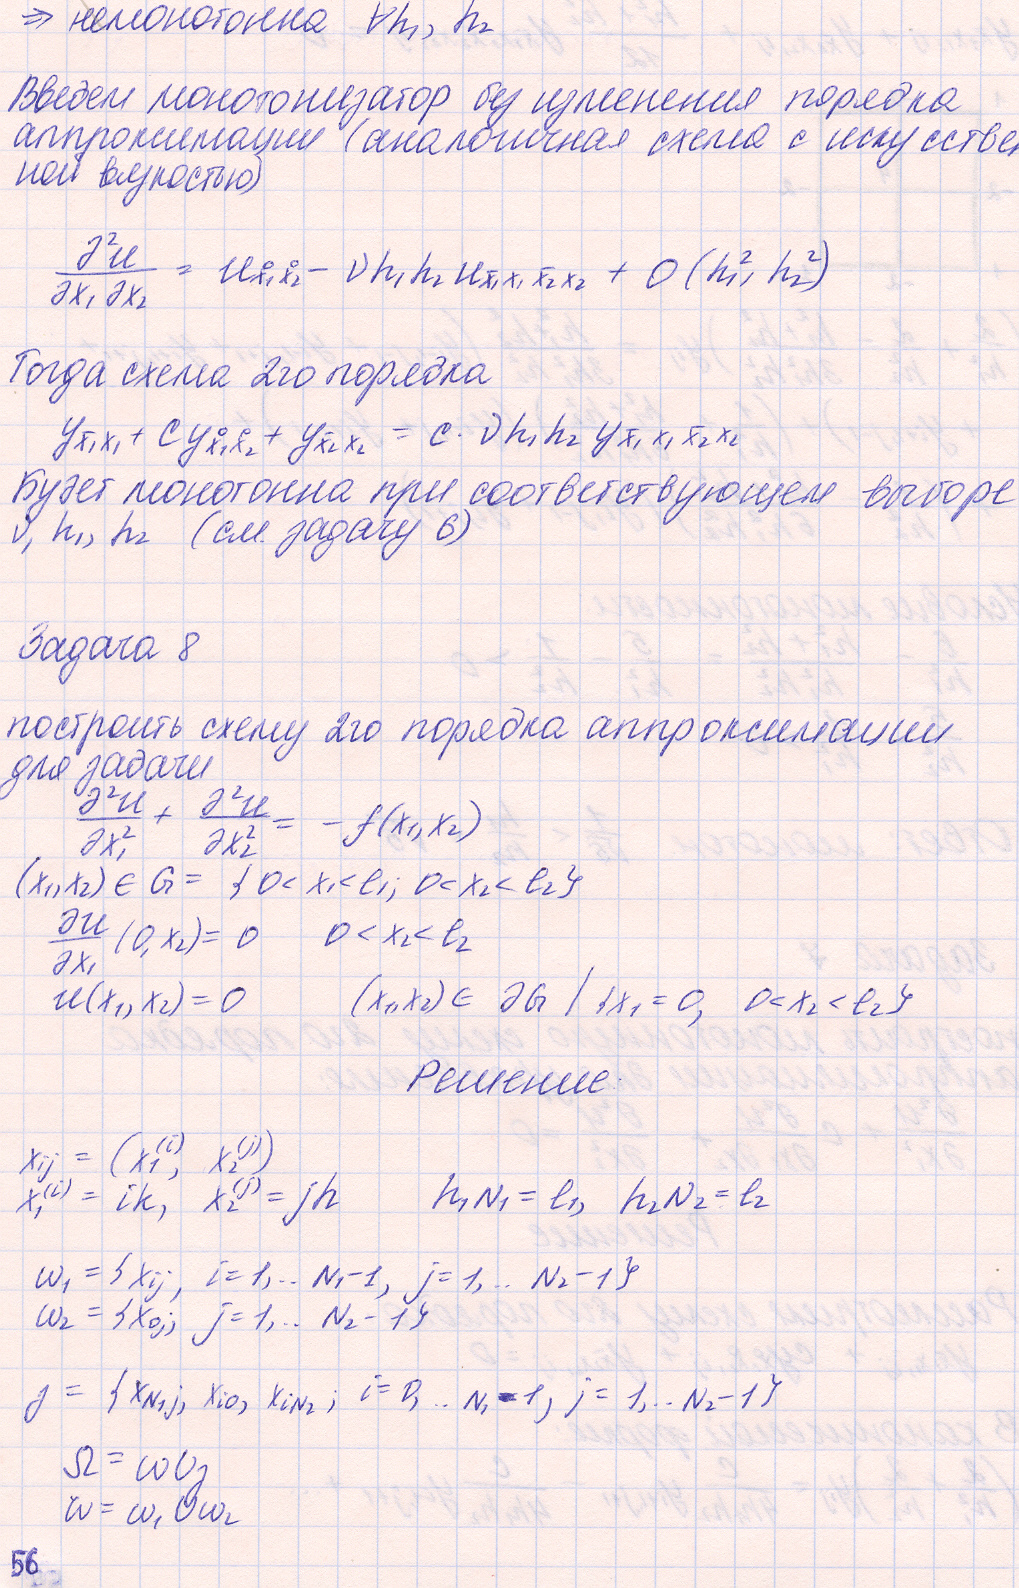 ⇒ немонотонна ∀h₁, h₂
Введем монотонизатор без изменения порядка
аппроксимации (аналогичная схема с искусствен
ной вязкостью)
∂²u/∂x₁∂x₂ = u_{x̊₁x̊₂} − νh₁h₂u_{x̄₁x₁x̄₂x₂} + O(h₁², h₂²)
Тогда схема 2го порядка
y_{x̄₁x₁} + cy_{x̊₁x̊₂} + y_{x̄₂x₂} = c·νh₁h₂y_{x̄₁x₁x̄₂x₂}
Будет монотонна при соответствующем выборе
ν, h₁, h₂ (см. задачу 6)
Задача 8
построить схему 2го порядка аппроксимации
для задачи
∂²u/∂x₁² + ∂²u/∂x₂² = −f(x₁,x₂)
(x₁,x₂) ∈ G = {0<x₁<l₁; 0<x₂<l₂}
∂u/∂x₁ (0,x₂) = 0 0<x₂<l₂
u(x₁,x₂) = 0 (x₁,x₂) ∈ ∂G / {x₁=0, 0<x₂<l₂}
Решение
x_{ij} = (x₁^{(i)}, x₂^{(j)})
x₁^{(i)} = ih, x₂^{(j)} = jh h₁N₁ = l₁, h₂N₂ = l₂
ω₁ = {x_{ij}, i=1,.. N₁−1, j=1,.. N₂−1}
ω₂ = {x_{0j}, j=1,.. N₂−1}
γ = {x_{N₁j}, x_{i0}, x_{iN₂}; i=0,.. N₁−1, j=1,.. N₂−1}
Ω = ω∪γ
ω = ω₁∪ω₂
56